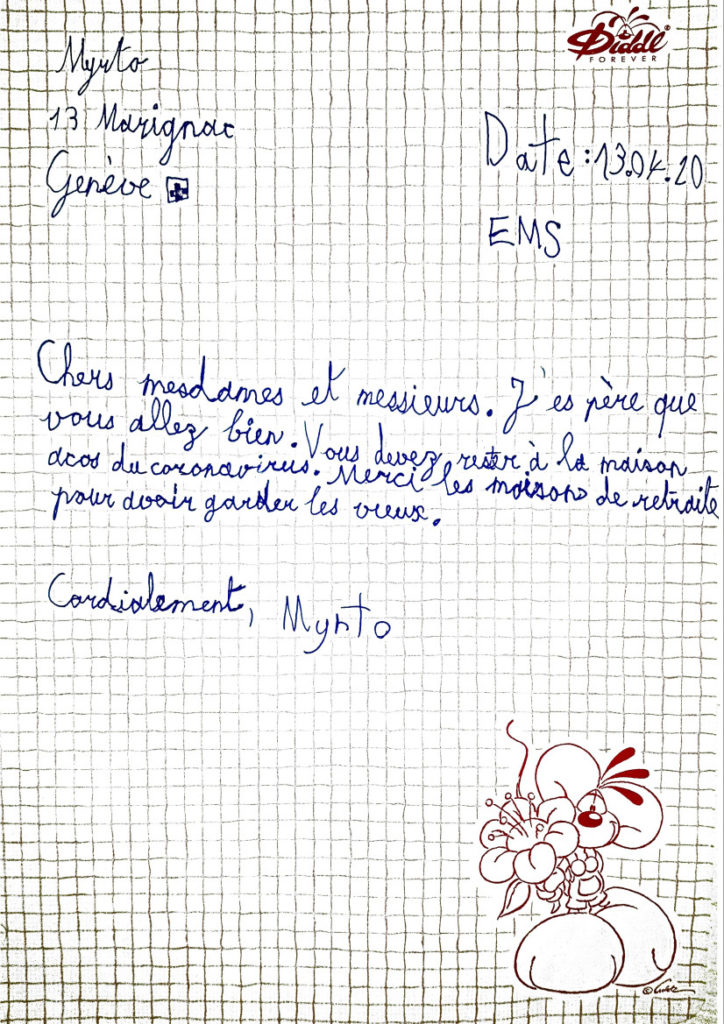 Diddl
FOREVER
Myrto
13 Marignac
Genève
Date : 13.04.20
EMS
Chers mesdames et messieurs. J'es père que
vous allez bien. Vous devez rester à la maison
acos du coronavirus. Merci les maisons de retraite
pour avoir garder les vieux.
Cordialement, Myrto